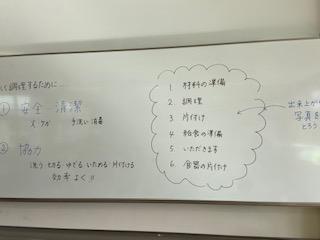 く調理するために…
① 安全 清潔
ケガ 手洗い 消毒
② 協力
洗う 切る ゆでる いためる 片付ける
効率よく!!
1 材料の準備
2 調理
3 片付け
4 給食の準備
5 いただきます
6 食器の片付け
出来上がり
写真を
とろう